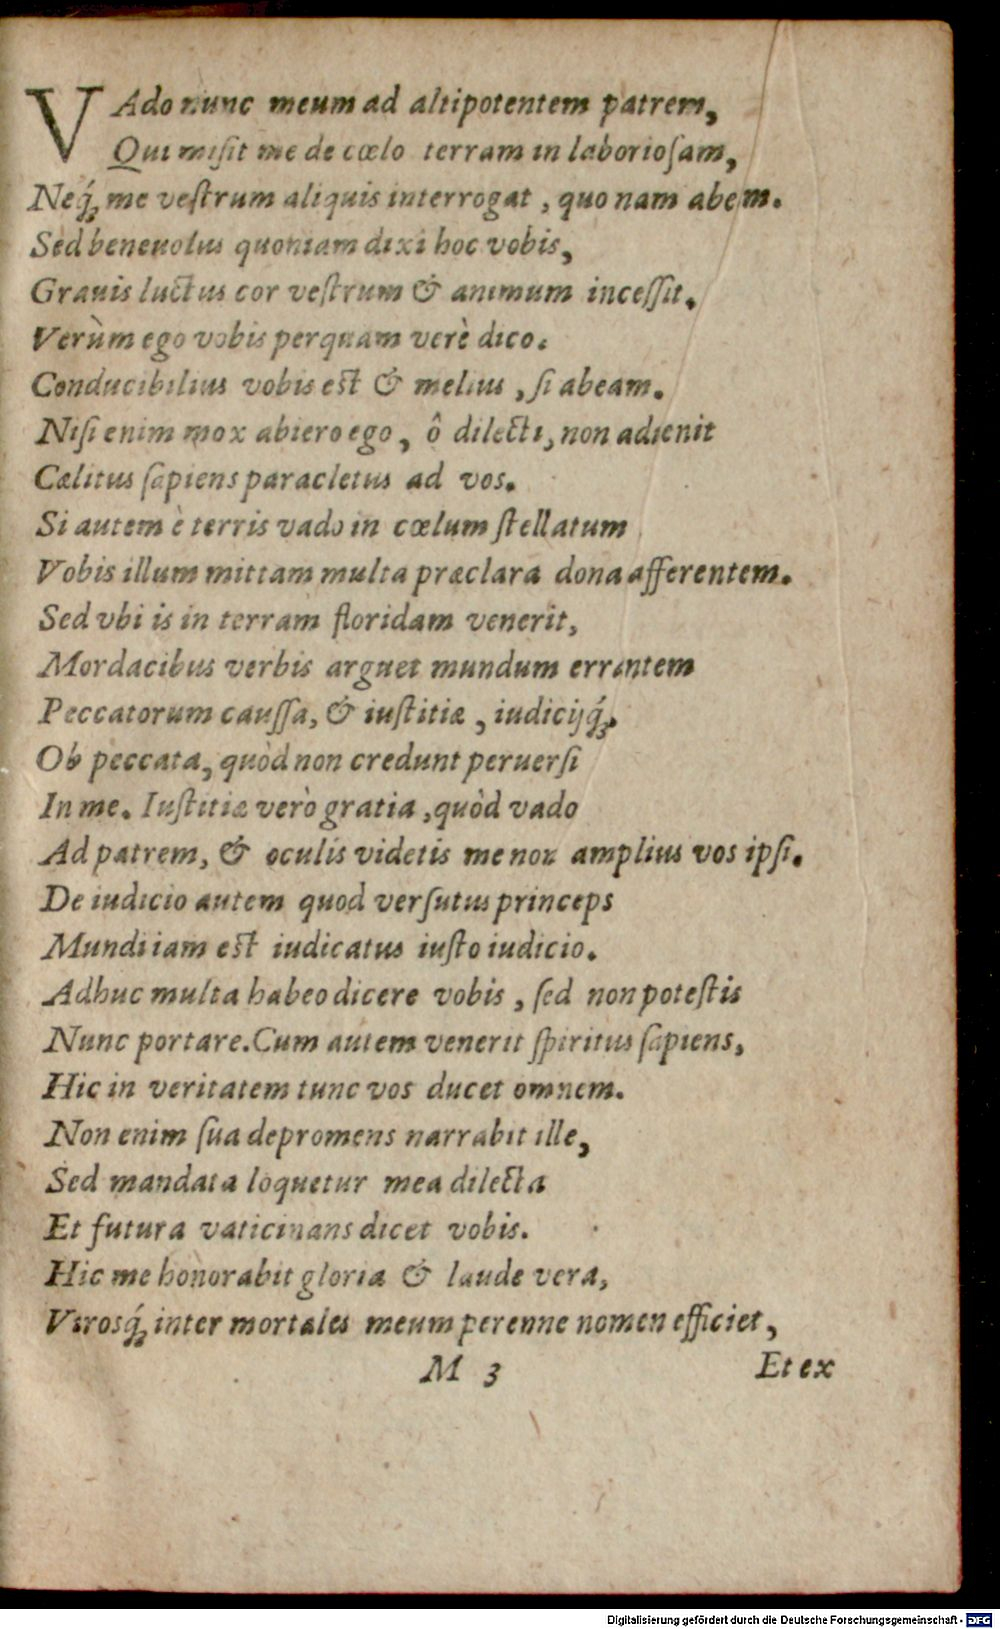 VAdo nunc meum ad altipotentem patrem,
Qui miſit me de cœlo terram in laborioſam,
Neq́ꝫ me veſtrum aliquis interrogat, quo nam abeam.
Sed beneuolus quoniam dixi hoc vobis,
Grauis luctus cor veſtrum & animum inceſſit.
Verùm ego vobis perquam verè dico.
Conducibilius vobis est & melius, ſi abeam.
Niſi enim mox abiero ego, ô dilecti, non adienit
Cælitus ſapiens paracletus ad vos.
Si autem è terris vado in cœlum ſtellatum
Vobis illum mittam multa præclara dona afferentem.
Sed vbi is in terram floridam venerit,
Mordacibus verbis arguet mundum errantem
Peccatorum cauſſa, & iuſtitiæ, iudicijq́ꝫ.
Ob peccata, quòd non credunt peruerſi
In me. Iuſtitiæ verò gratia, quòd vado
Ad patrem, & oculis videtis me non amplius vos ipſi.
De iudicio autem quod verſutus princeps
Mundi iam est iudicatus iuſto iudicio.
Adhuc multa habeo dicere vobis, ſed non poteſtis
Nunc portare. Cum autem venerit ſpiritus ſapiens,
Hic in veritatem tunc vos ducet omnem.
Non enim ſua depromens narrabit ille,
Sed mandata loquetur mea dilecta
Et futura vaticinans dicet vobis.
Hic me honorabit gloria & laude vera,
Virosq́ꝫ inter mortales meum perenne nomen efficiet,
M 3
Et ex
Digitalisierung gefördert durch die Deutsche Forschungsgemeinschaft - DFG